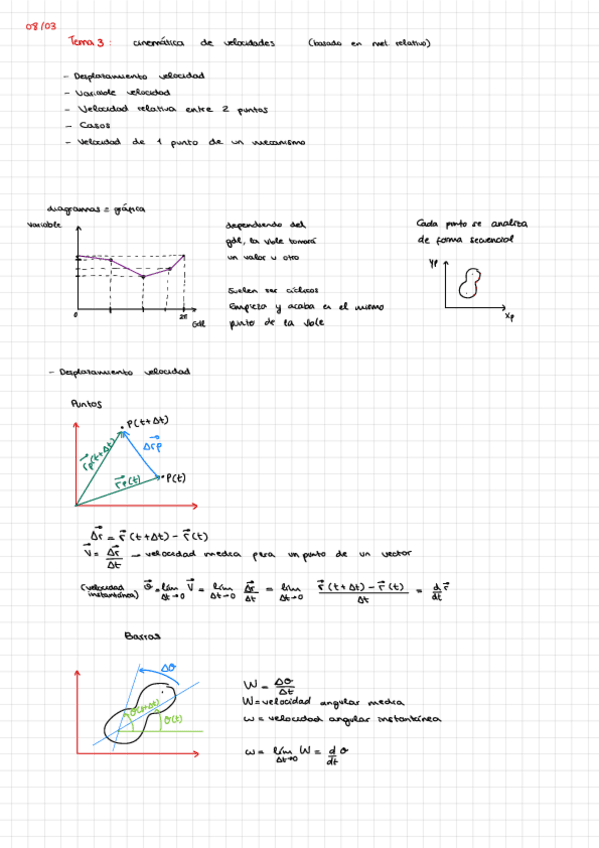 08/03
Tema 3: cinemática de velocidades (basado en mvt relativo)
- Desplazamiento velocidad
- Variable velocidad
- Velocidad relativa entre 2 puntos
- Casos
- Velocidad de 1 punto de un mecanismo
diagramas = gráfica
variable
0
2π
Gdl
dependiendo del
gdl, la vble tomará
un valor u otro
Suelen ser cíclicos
Empieza y acaba en el mismo
punto de la vble
Cada punto se analiza
de forma secuencial
Yp
Xp
- Desplazamiento velocidad
Puntos
P(t+Δt)
r⃗p(t+Δt)
Δr⃗p
r⃗p(t)
P(t)
Δr⃗ = r⃗(t+Δt) - r⃗(t)
V⃗ = Δr⃗/Δt → velocidad media para un punto de un vector
(velocidad instantánea) v⃗ = lím Δt→0 V⃗ = lím Δt→0 Δr⃗/Δt = lím Δt→0 (r⃗(t+Δt) - r⃗(t))/Δt = d/dt r⃗
Barras
Δθ
θ(t+Δt)
θ(t)
W = Δθ/Δt
W = velocidad angular media
ω = velocidad angular instantánea
ω = lím Δt→0 W = d/dt θ